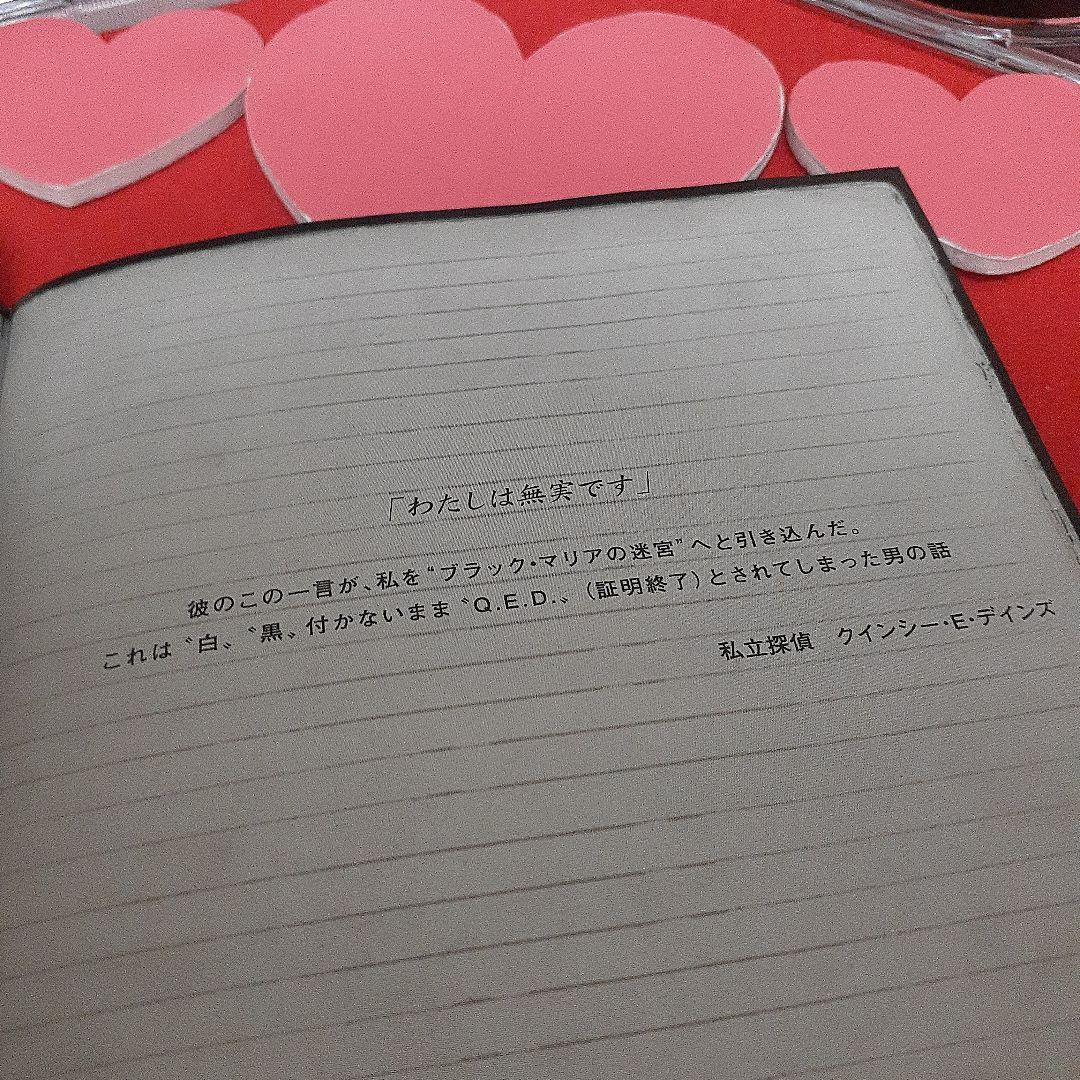 「わたしは無実です」
彼のこの一言が、私を“ブラック・マリアの迷宮”へと引き込んだ。
これは〝白〟〝黒〟付かないまま〝Q.E.D.〟（証明終了）とされてしまった男の話
私立探偵　クインシー・E・デインズ